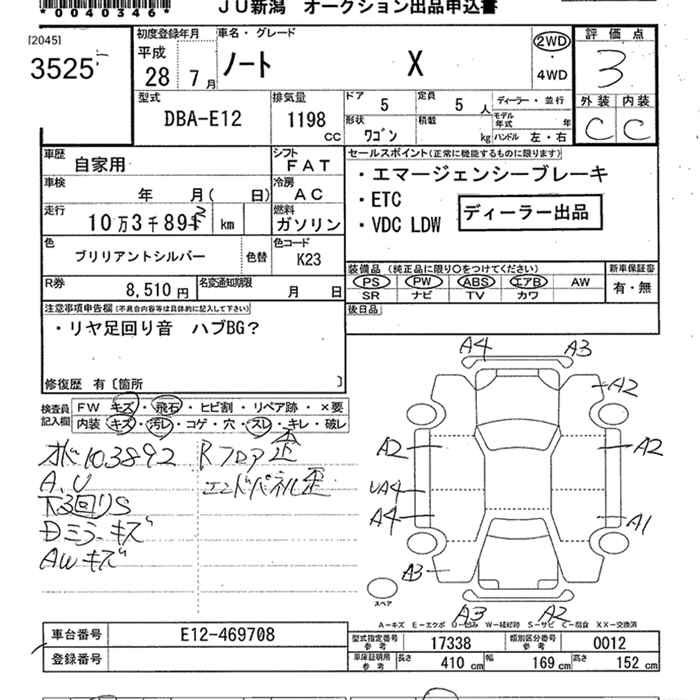 *0040346*
JU新潟 オークション出品申込書
[2045]
3525
初度登録年月
平成
28 7月
車名・グレード
ノート X
2WD
・
4WD
評価点
3
外装 内装
C C
型式
DBA-E12
排気量
1198
CC
ドア 5
定員 5 人
形状 ワゴン
積載 kg
ディーラー・並行
モデル年式 年
ハンドル 左・右
車歴
自家用
シフト
FAT
車検
年 月( 日)
冷房
AC
走行
10万3千89 km
燃料
ガソリン
色
ブリリアントシルバー
色替
色コード
K23
R券
8,510円
名変通知期限
月 日
セールスポイント(正常に機能するものに限ります)
・エマージェンシーブレーキ
・ETC
・VDC LDW
ディーラー出品
装備品 (純正品に限り○をつけてください)
新車保証書
PS PW ABS エアB AW
SR ナビ TV カワ
有・無
後日品
注意事項申告欄(不具合内容等は具体的に記入して下さい)
・リヤ足回り音 ハブBG?
修復歴 有〔箇所 〕
検査員記入欄
FW キズ・飛石・ヒビ割・リペア跡・×要
内装 キズ・汚レ・コゲ・穴・スレ・キレ・破レ
103892 Rフロア歪
A.U エンドパネル歪
下回りS
Dミラーキズ
AWキズ
A4 A3
A2
A2 A2
UA4
A4 A1
A3
A3 A2
スペア
A-キズ E-エクボ U-凹み W-補修跡 S-サビ C-腐食 XX-交換済
車台番号 E12-469708
登録番号
型式指定番号 参考 17338
類別区分番号 参考 0012
車庫証明用 参考
長さ 410 cm 幅 169 cm 高さ 152 cm